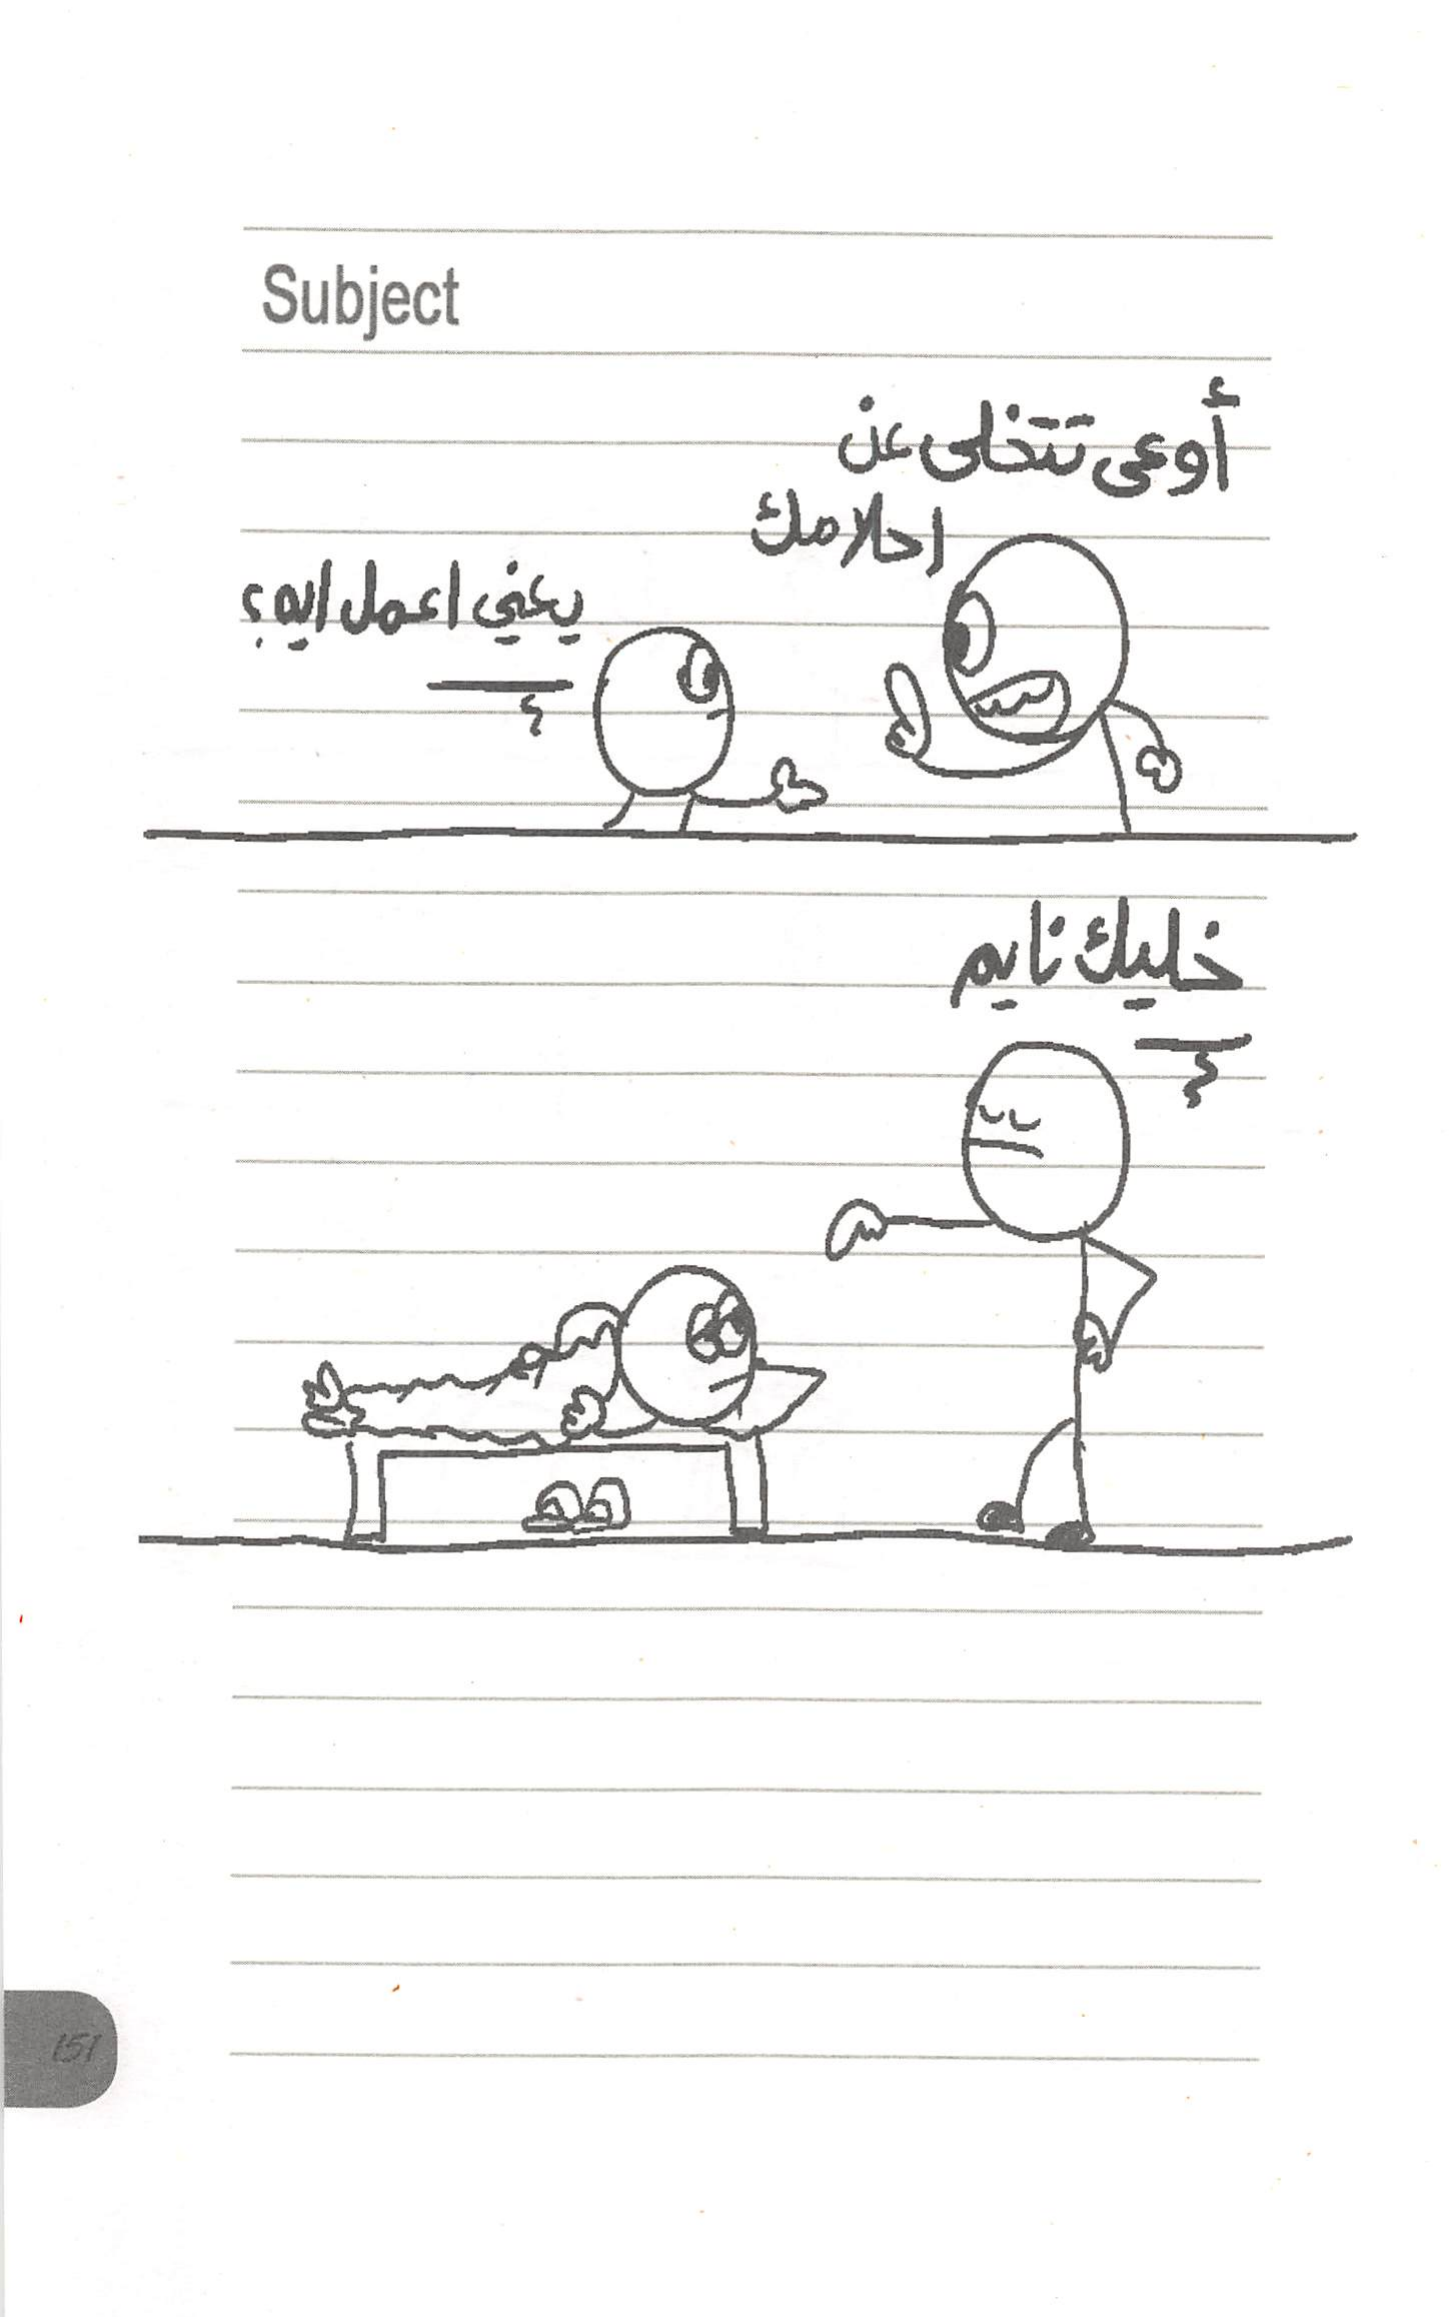 Subject
أوعى تتخلى عن
احلامك
يعني اعمل ايه؟
خليك نايم
151